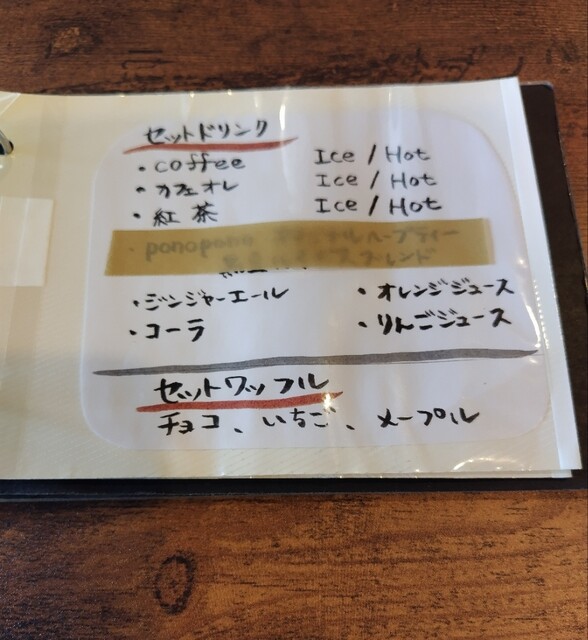 セットドリンク
・coffee Ice / Hot
・カフェオレ Ice / Hot
・紅茶 Ice / Hot
ハーブティー
ブレンド
・ジンジャーエール ・オレンジジュース
・コーラ ・りんごジュース
セットワッフル
チョコ、いちご、メープル